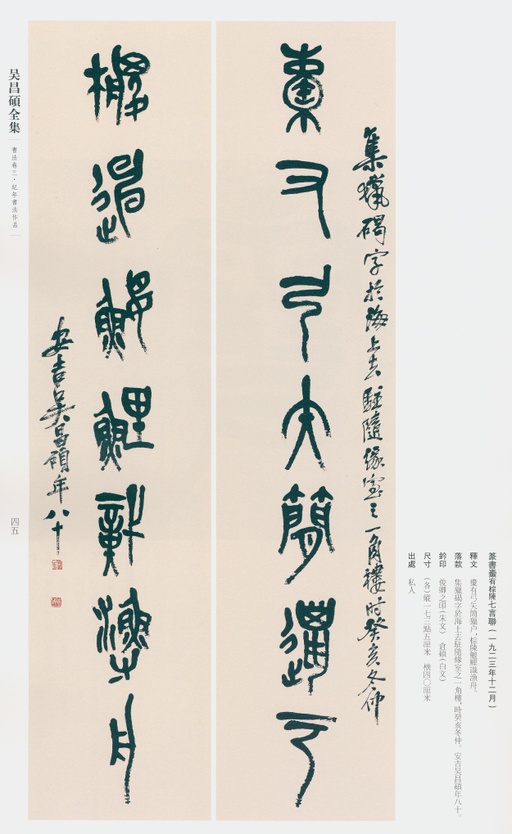 集獵碣字於海上去駐隨緣室之一角樓時癸亥冬仲
弓矢簡
鰋鯉漁舟
安吉吳昌碩年八十
吴昌碩全集
書法卷三·紀年書法作品
四五
篆書橐有棕陳七言聯（一九二三年十二月）
釋文 橐有弓矢簡獵户，棕陳鰋鯉識漁舟。
落款 集獵碣字於海上去駐隨緣室之一角樓，時癸亥冬仲。安吉吳昌碩年八十。
鈐印 俊卿之印（朱文） 倉碩（白文）
尺寸 （各）縱一七三點五厘米 橫四〇厘米
出處 私人